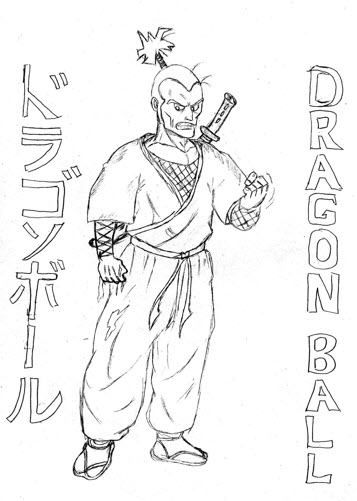 ドラゴンボール
DRAGON BALL